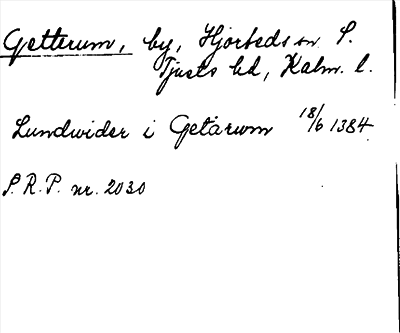 Getterum, by, Hjorteds sn. S.
Tjusts hd, Kalm. l.
Lundwider i Getarwm 18/6 1384
S.R.P. nr. 2030